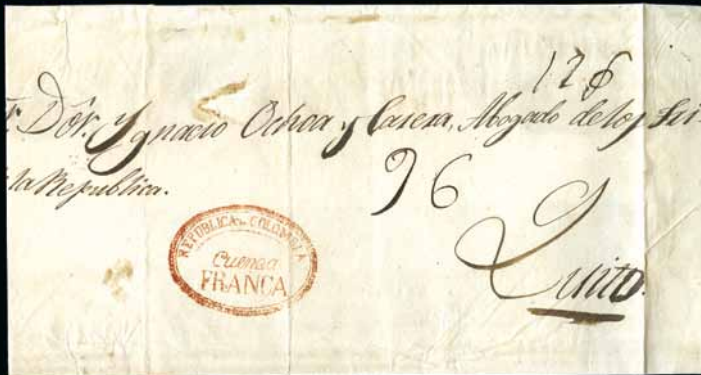 126
Dor. Ygnacio Ochoa y Carera, Abogado de los Tri
la Republica.
96
REPUBLICA DE COLOMBIA
Cuenca
FRANCA
Quito.